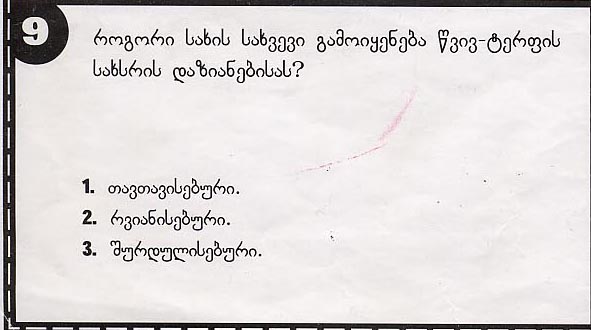 9
როგორი სახის სახვევი გამოიყენება წვივ-ტერფის
სახსრის დაზიანებისას?
1. თავთავისებური.
2. რვიანისებური.
3. შურდულისებური.